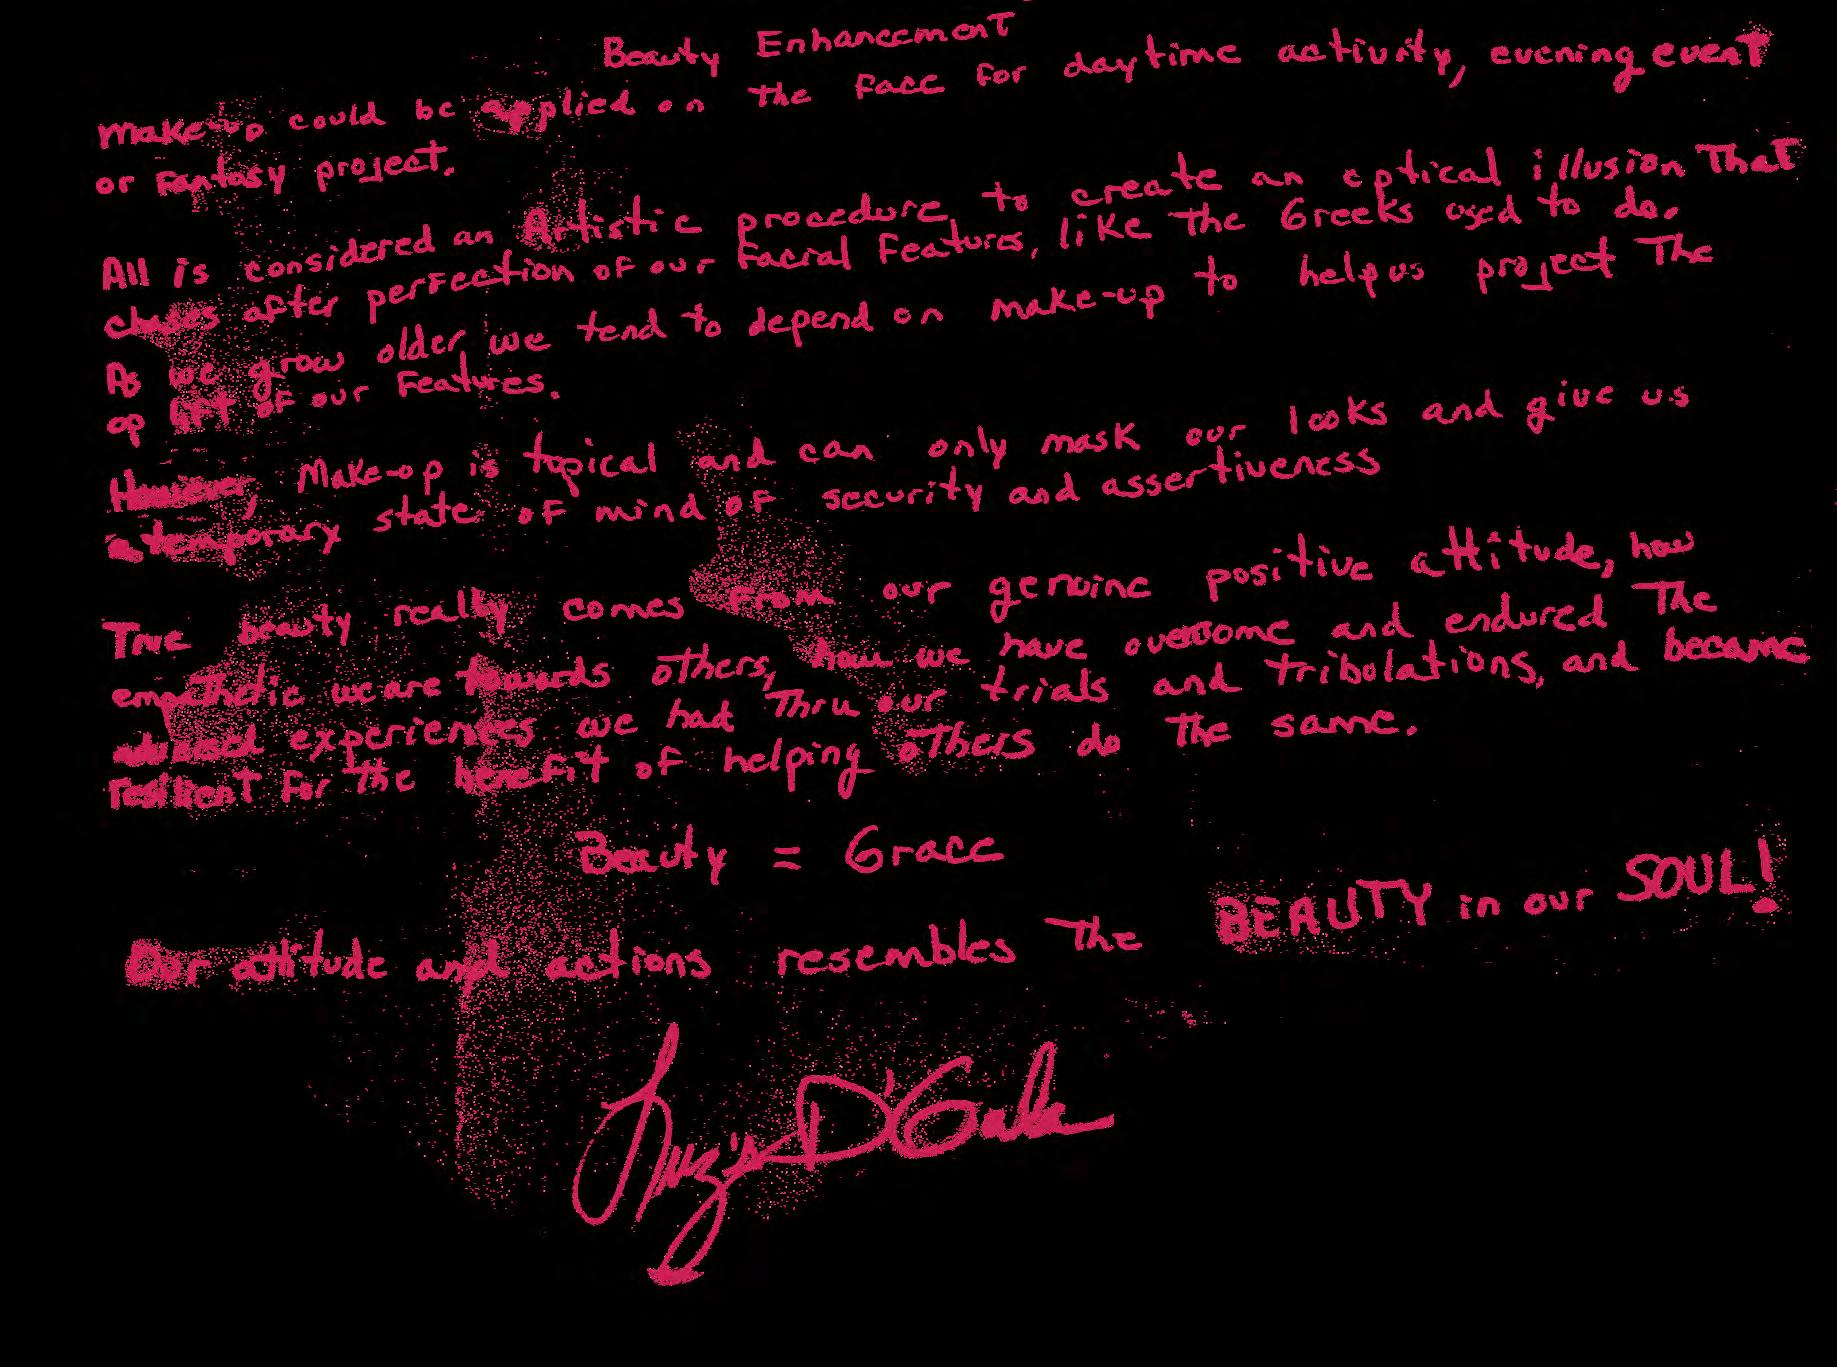 Beauty Enhancement
Make-up could be applied on the face for daytime activity, evening event
or Fantasy project.
All is considered an Artistic procedure, to create an optical illusion That
chases after perfection of our Facial Features, like The Greeks used to do.
As we grow older, we tend to depend on make-up to help us project The
up lift of our Features.
However, Make-up is topical and can only mask our looks and give us
a temporary state of mind of security and assertiveness
True beauty really comes From our genuine positive attitude, how
empathetic we are towards others, how we have overcome and endured The
experiences we had Thru our trials and tribulations, and became
resilient For The benefit of helping others do The same.
Beauty = Grace
Our attitude and actions resembles The BEAUTY in our SOUL!
Luz's D'Gala